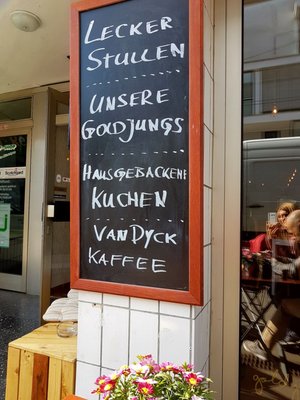 LECKER
STULLEN
UNSERE
GOLDJUNGS
HAUSGEBACKENE
KUCHEN
VAN DYCK
KAFFEE